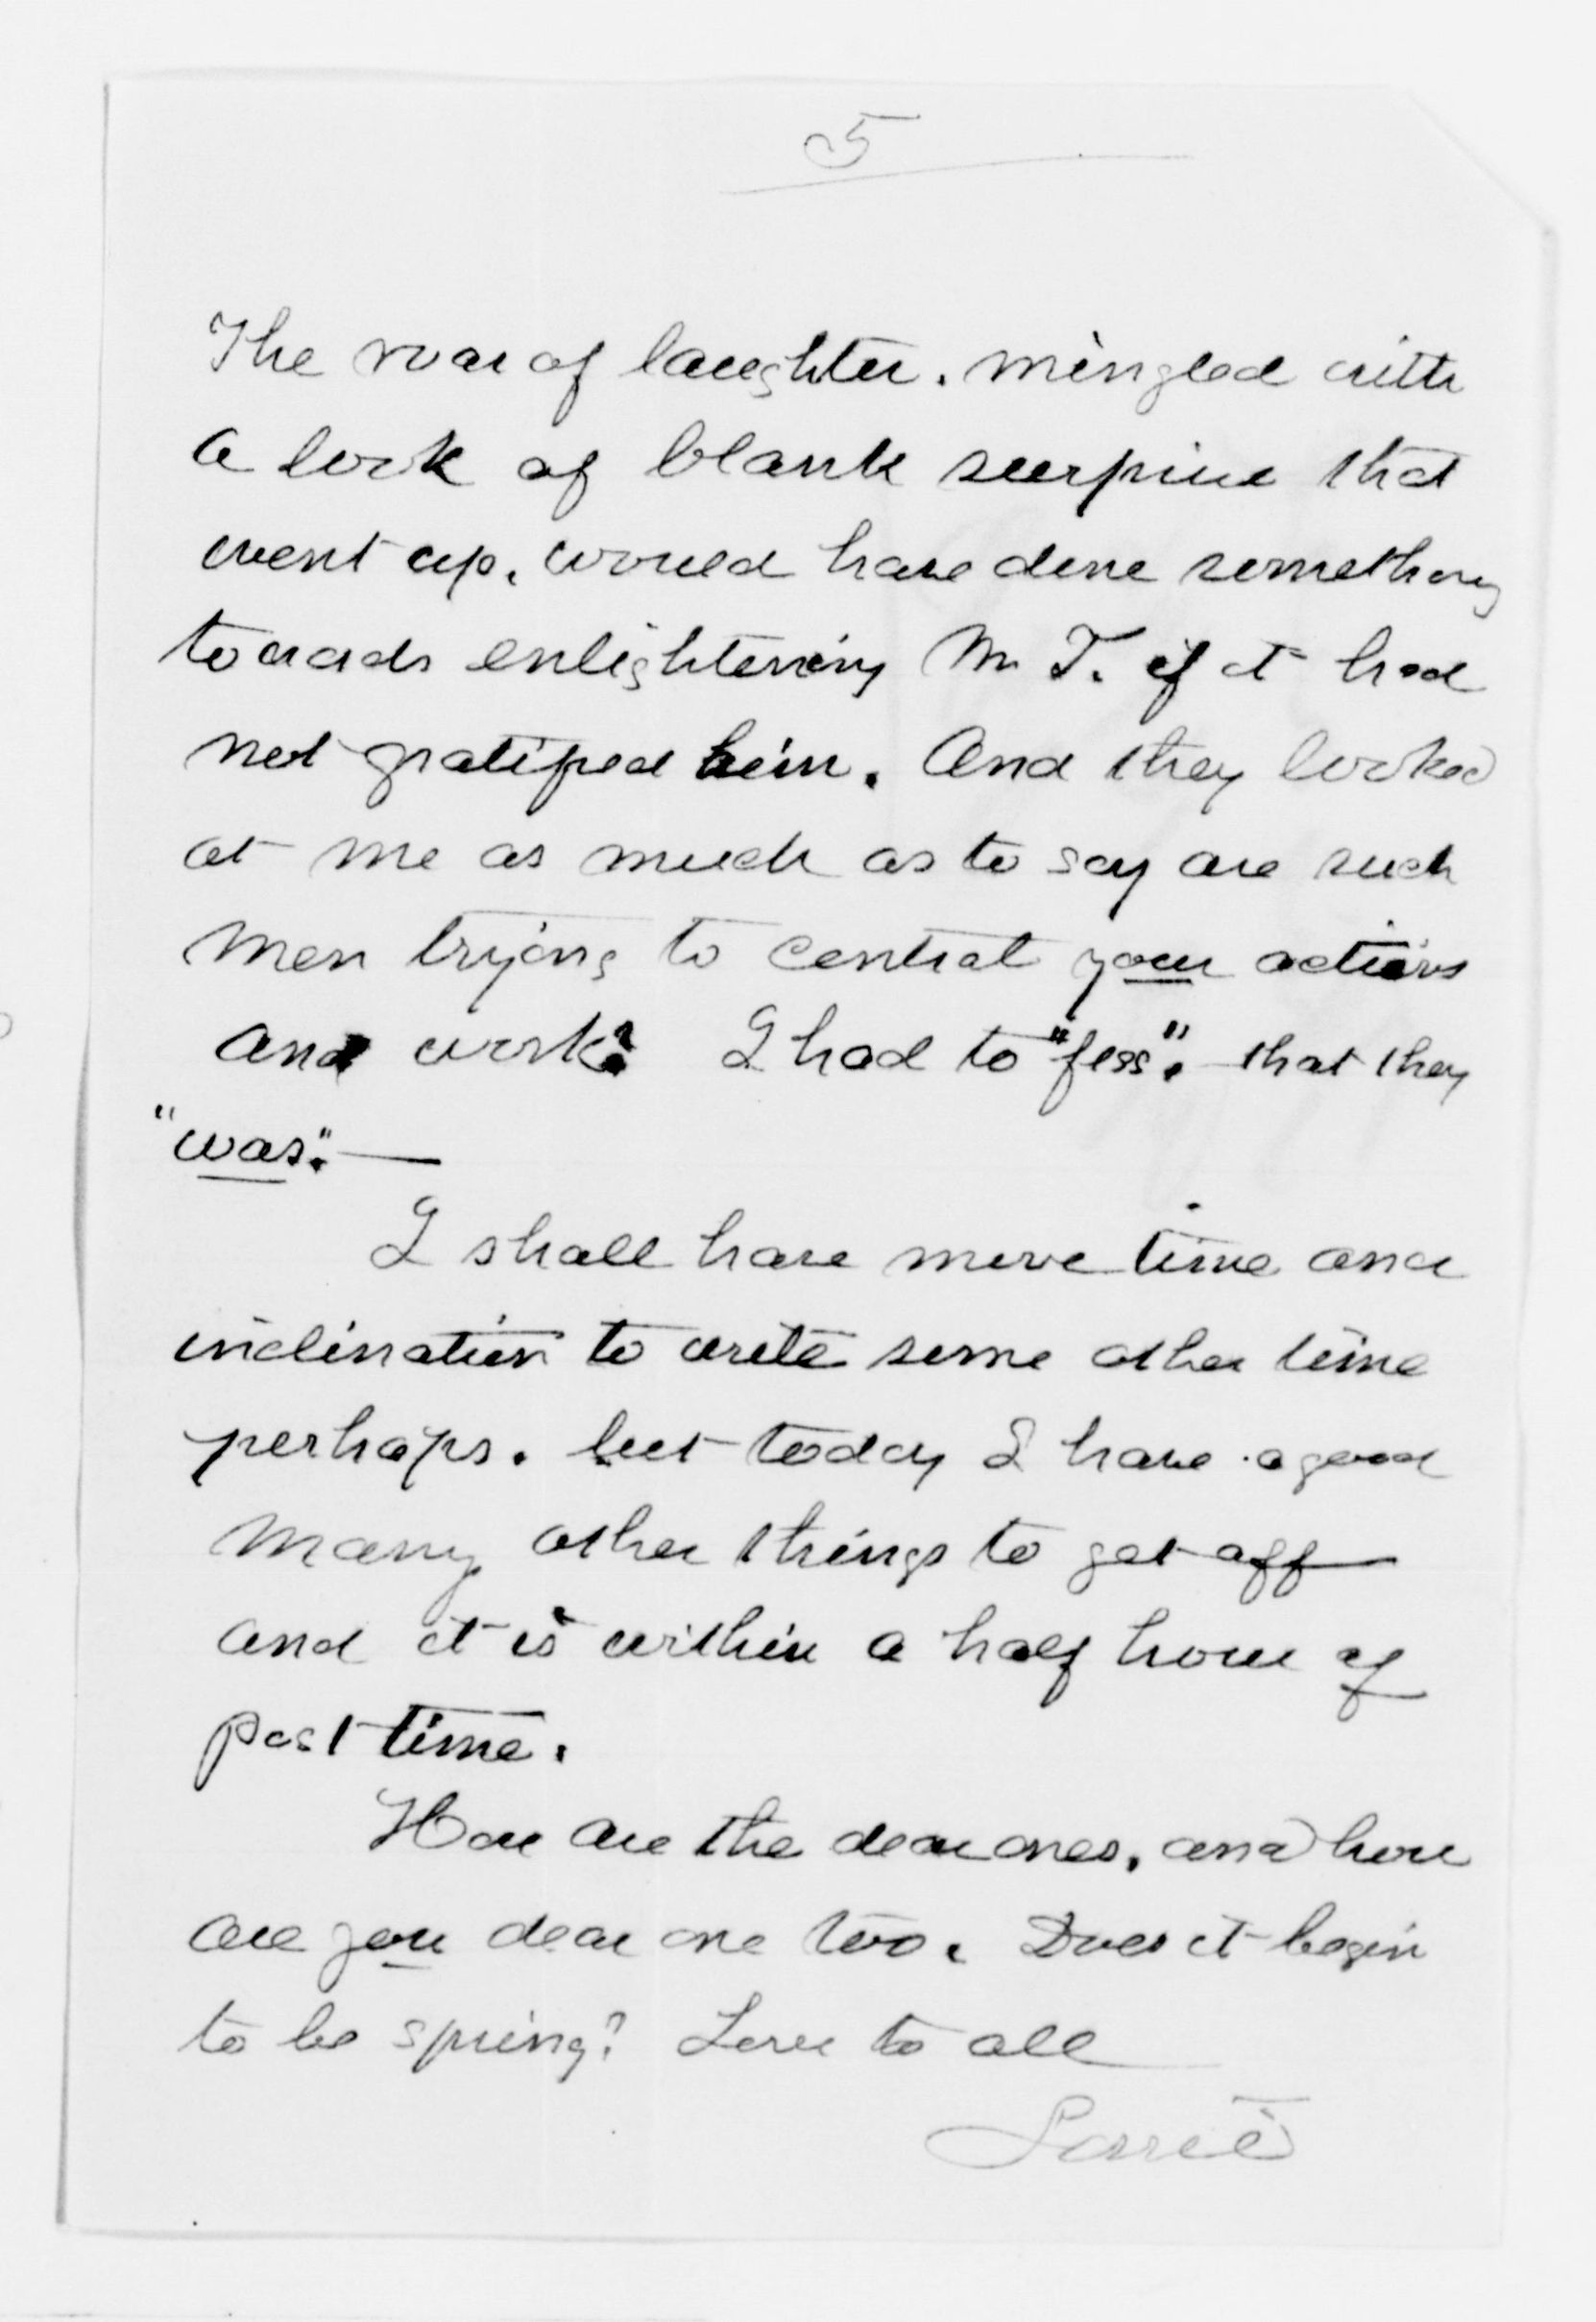 5
The roar of laughter. mingled with
a look of blank surprise that
went up, would have done something
towards enlightening Mr T. if it had
not gratified him. And they looked
at me as much as to say are such
men trying to control your actions
and work? I had to "fess". that they
"was". —
I shall have more time and
inclination to write some other time
perhaps. but today I have a good
many other things to get off
and it is within a half hour of
post time.
How are the dear ones, and how
are you dear one too. Does it begin
to be spring? Love to all